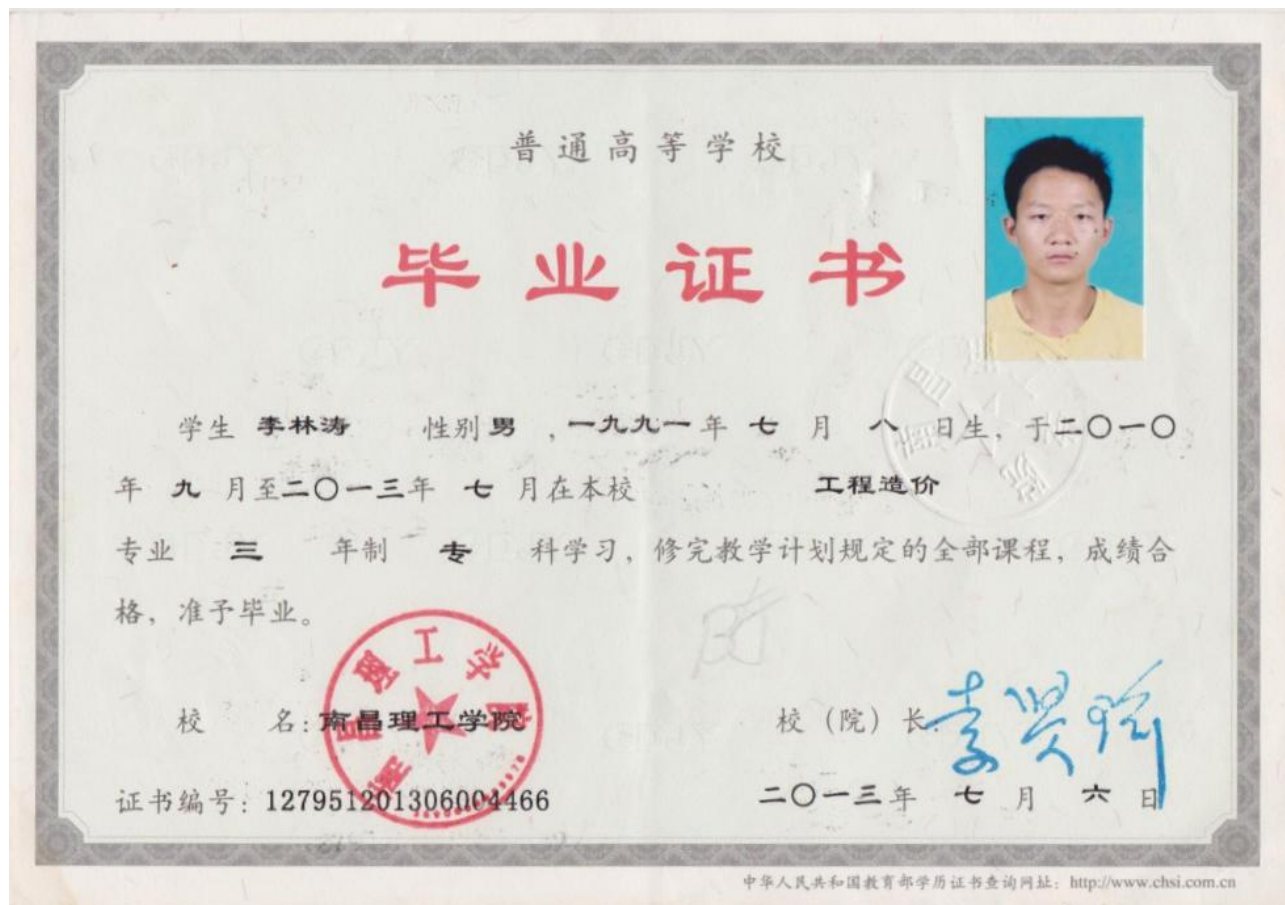 普通高等学校
毕业证书
学生 李林涛 性别 男 ,一九九一年 七 月 八 日生, 于二〇一〇
年 九 月至二〇一三年 七 月在本校 工程造价
专业 三 年制 专 科学习, 修完教学计划规定的全部课程, 成绩合
格, 准予毕业。
校 名: 南昌理工学院
南昌理工学院
校 (院) 长:
证书编号: 127951201306004466
二〇一三年 七 月 六 日
中华人民共和国教育部学历证书查询网址: http://www.chsi.com.cn